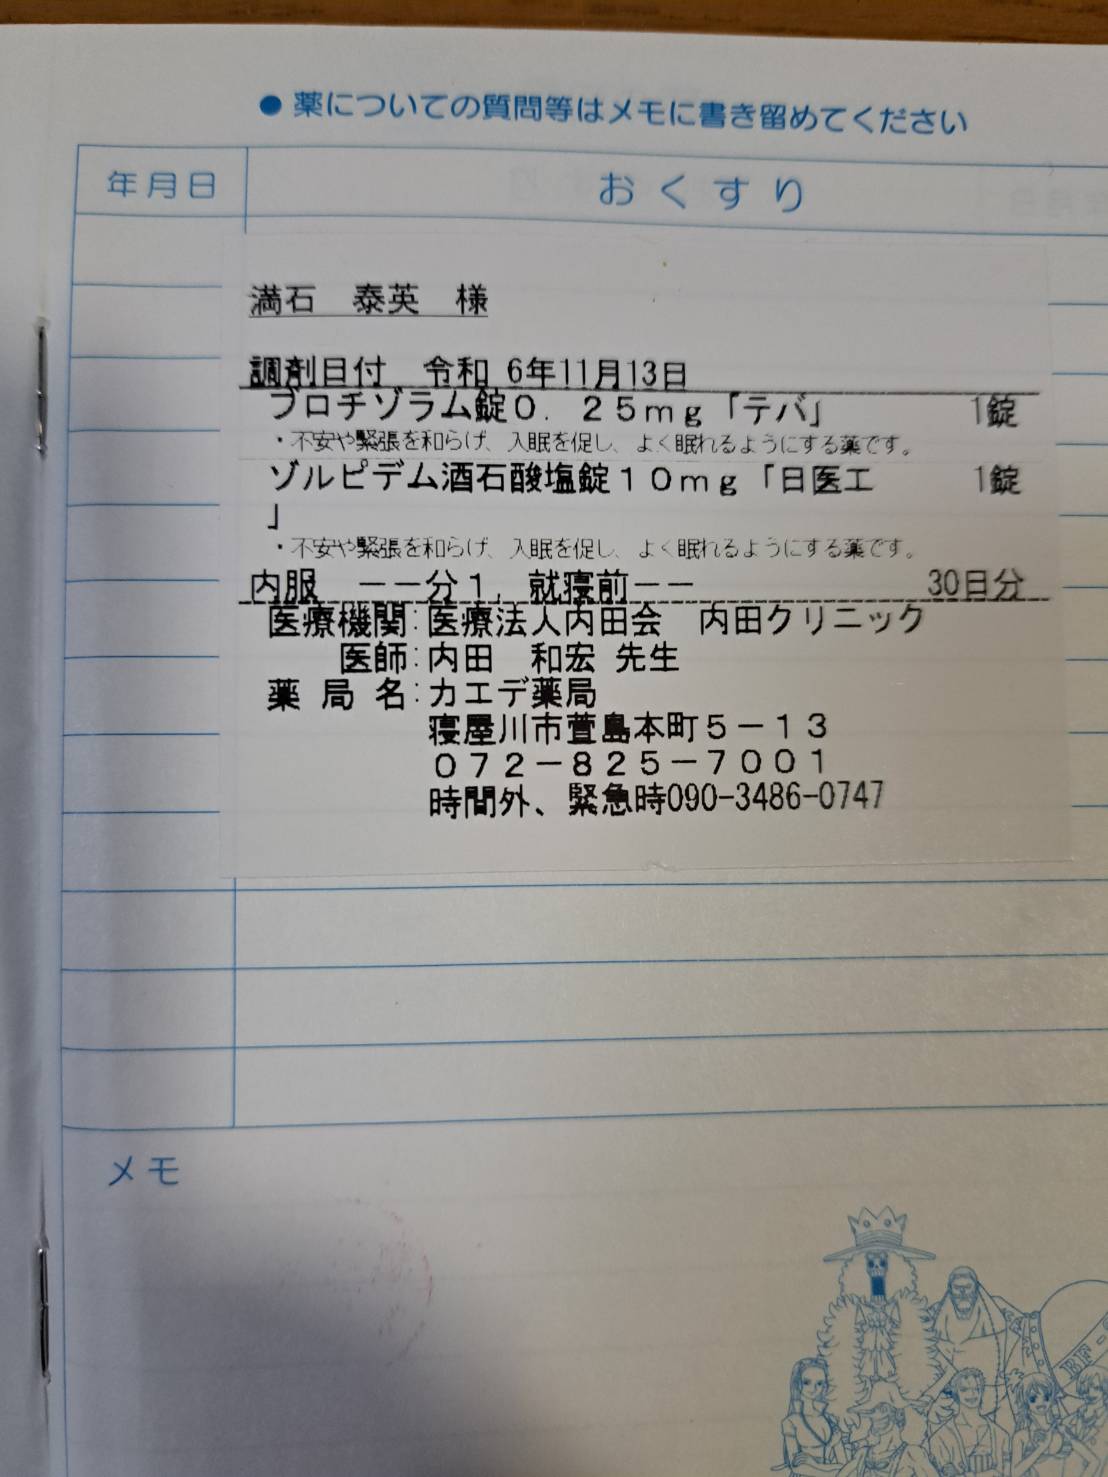 ●薬についての質問等はメモに書き留めてください
年月日 おくすり
満石 泰英 様
調剤日付 令和 6年11月13日
ブロチゾラム錠0.25mg「テバ」 1錠
・不安や緊張を和らげ、入眠を促し、よく眠れるようにする薬です。
ゾルピデム酒石酸塩錠10mg「日医工 1錠
」
・不安や緊張を和らげ、入眠を促し、よく眠れるようにする薬です。
内服 ーー分1,就寝前ーー 30日分
医療機関:医療法人内田会 内田クリニック
医師:内田 和宏 先生
薬局名:カエデ薬局
寝屋川市萱島本町5-13
072-825-7001
時間外、緊急時090-3486-0747
メモ
BF-